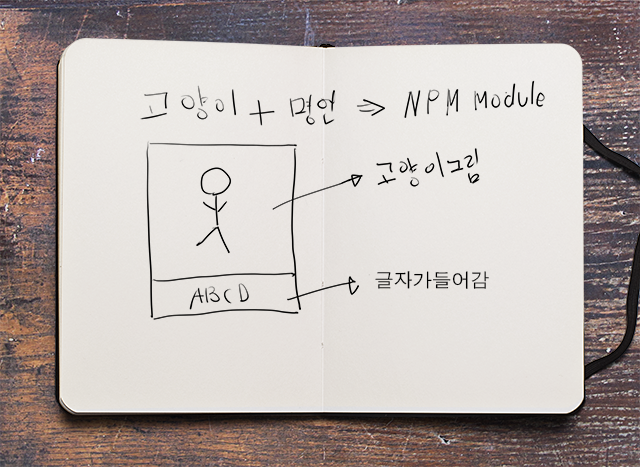 고양이 + 명언 => NPM Module
고양이그림
ABCD
글자가들어감